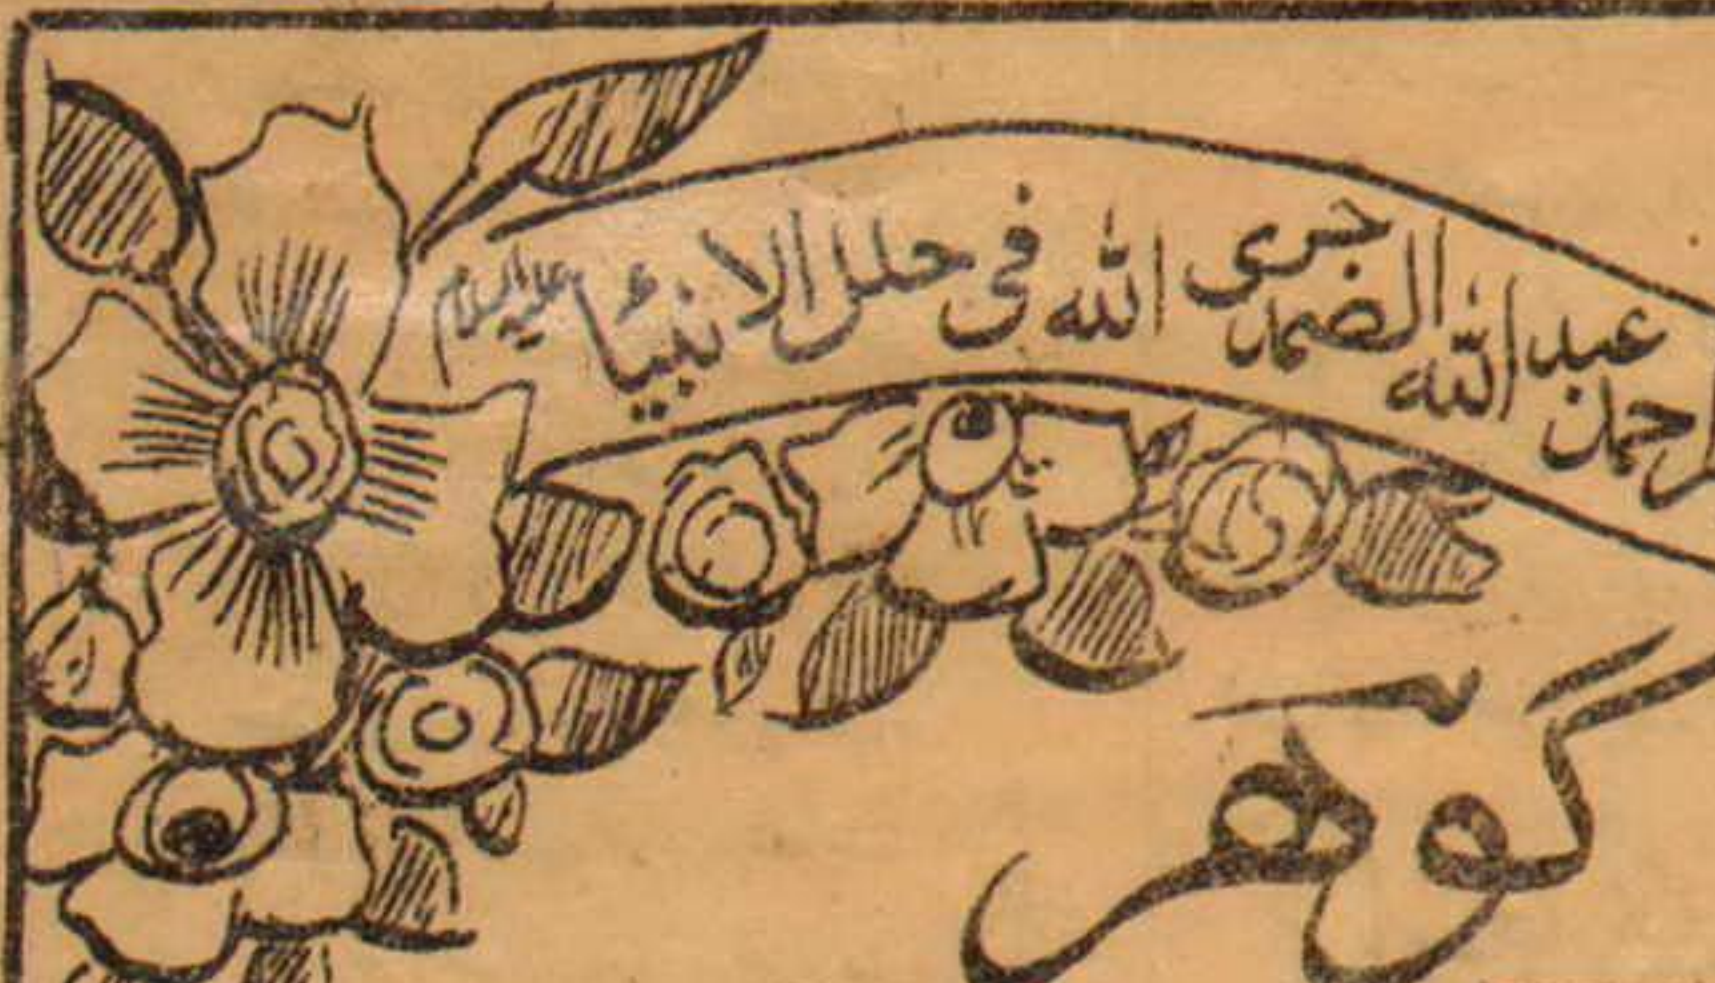 عبد الرحمن عبد الله الصمد جری الله فی حلل الانبیاء علیہ السلام
گوهر